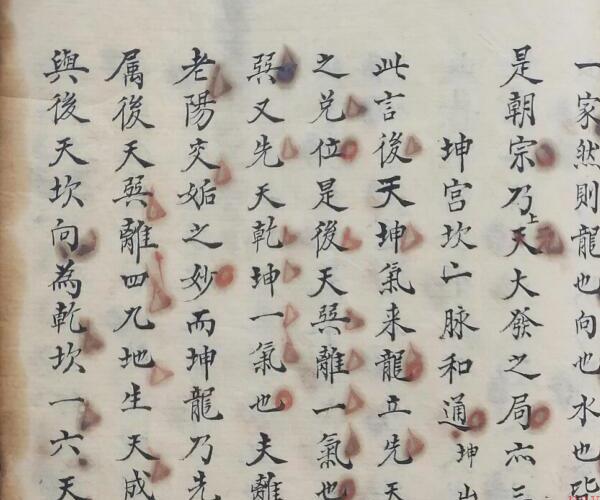 一家然則龍也向也水也皆
是朝宗乃上天大發之局
坤宮坎脉和通坤山
此言後天坤氣来龍立先天
之兑位是後天巽離一氣也
巽又先天乾坤一氣也夫離
老陽交姤之妙而坤龍乃先
属後天巽離四九地生天成
與後天坎向為乾坎一六天